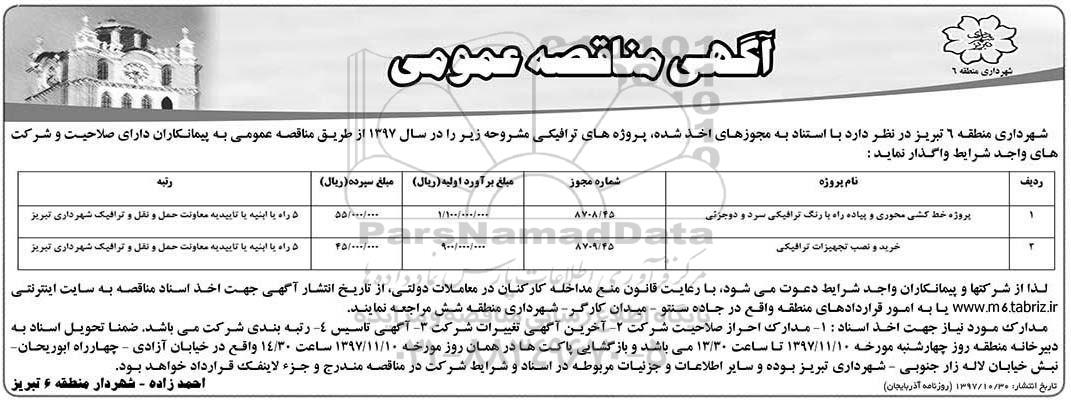 آگهی مناقصه عمومی
شهرداری منطقه ۶
شهرداری منطقه ۶ تبریز در نظر دارد با استناد به مجوزهای اخذ شده، پروژه های ترافیکی مشروحه زیر را در سال ۱۳۹۷ از طریق مناقصه عمومی به پیمانکاران دارای صلاحیت و شرکت
های واجد شرایط واگذار نماید :
ردیف نام پروژه شماره مجوز مبلغ برآورد اولیه(ریال) مبلغ سپرده(ریال) رتبه
۱ پروژه خط کشی محوری و پیاده راه با رنگ ترافیکی سرد و دوجزئی ۸۷۰۸/۴۵ ۱/۱۰۰/۰۰۰/۰۰۰ ۵۵/۰۰۰/۰۰۰ ۵ راه یا ابنیه یا تاییدیه معاونت حمل و نقل و ترافیک شهرداری تبریز
۲ خرید و نصب تجهیزات ترافیکی ۸۷۰۹/۴۵ ۹۰۰/۰۰۰/۰۰۰ ۴۵/۰۰۰/۰۰۰ ۵ راه یا ابنیه یا تاییدیه معاونت حمل و نقل و ترافیک شهرداری تبریز
ParsNamadData
لذا از شرکتها و پیمانکاران واجد شرایط دعوت می شود، با رعایت قانون منع مداخله کارکنان در معاملات دولتی، از تاریخ انتشار آگهی جهت اخذ اسناد مناقصه به سایت اینترنتی
www.m6.tabriz.ir یا به امور قراردادهای منطقه واقع در جاده سنتو - میدان کارگر- شهرداری منطقه شش مراجعه نمایند.
مدارک مورد نیاز جهت اخذ اسناد : ۱- مدارک احراز صلاحیت شرکت ۲- آخرین آگهی تغییرات شرکت ۳- آگهی تاسیس ۴- رتبه بندی شرکت می باشد. ضمنا تحویل اسناد به
دبیرخانه منطقه روز چهارشنبه مورخه ۱۳۹۷/۱۱/۱۰ تا ساعت ۱۳/۳۰ می باشد و بازگشایی پاکت ها در همان روز مورخه ۱۳۹۷/۱۱/۱۰ ساعت ۱۴/۳۰ واقع در خیابان آزادی - چهارراه ابوریحان-
نبش خیابان لاله زار جنوبی - شهرداری تبریز بوده و سایر اطلاعات و جزئیات مربوطه در اسناد و شرایط شرکت در مناقصه مندرج و جزء لاینفک قرارداد خواهد بود.
تاریخ انتشار: ۱۳۹۷/۱۰/۳۰ (روزنامه آذربایجان)
احمد زاده - شهردار منطقه ۶ تبریز